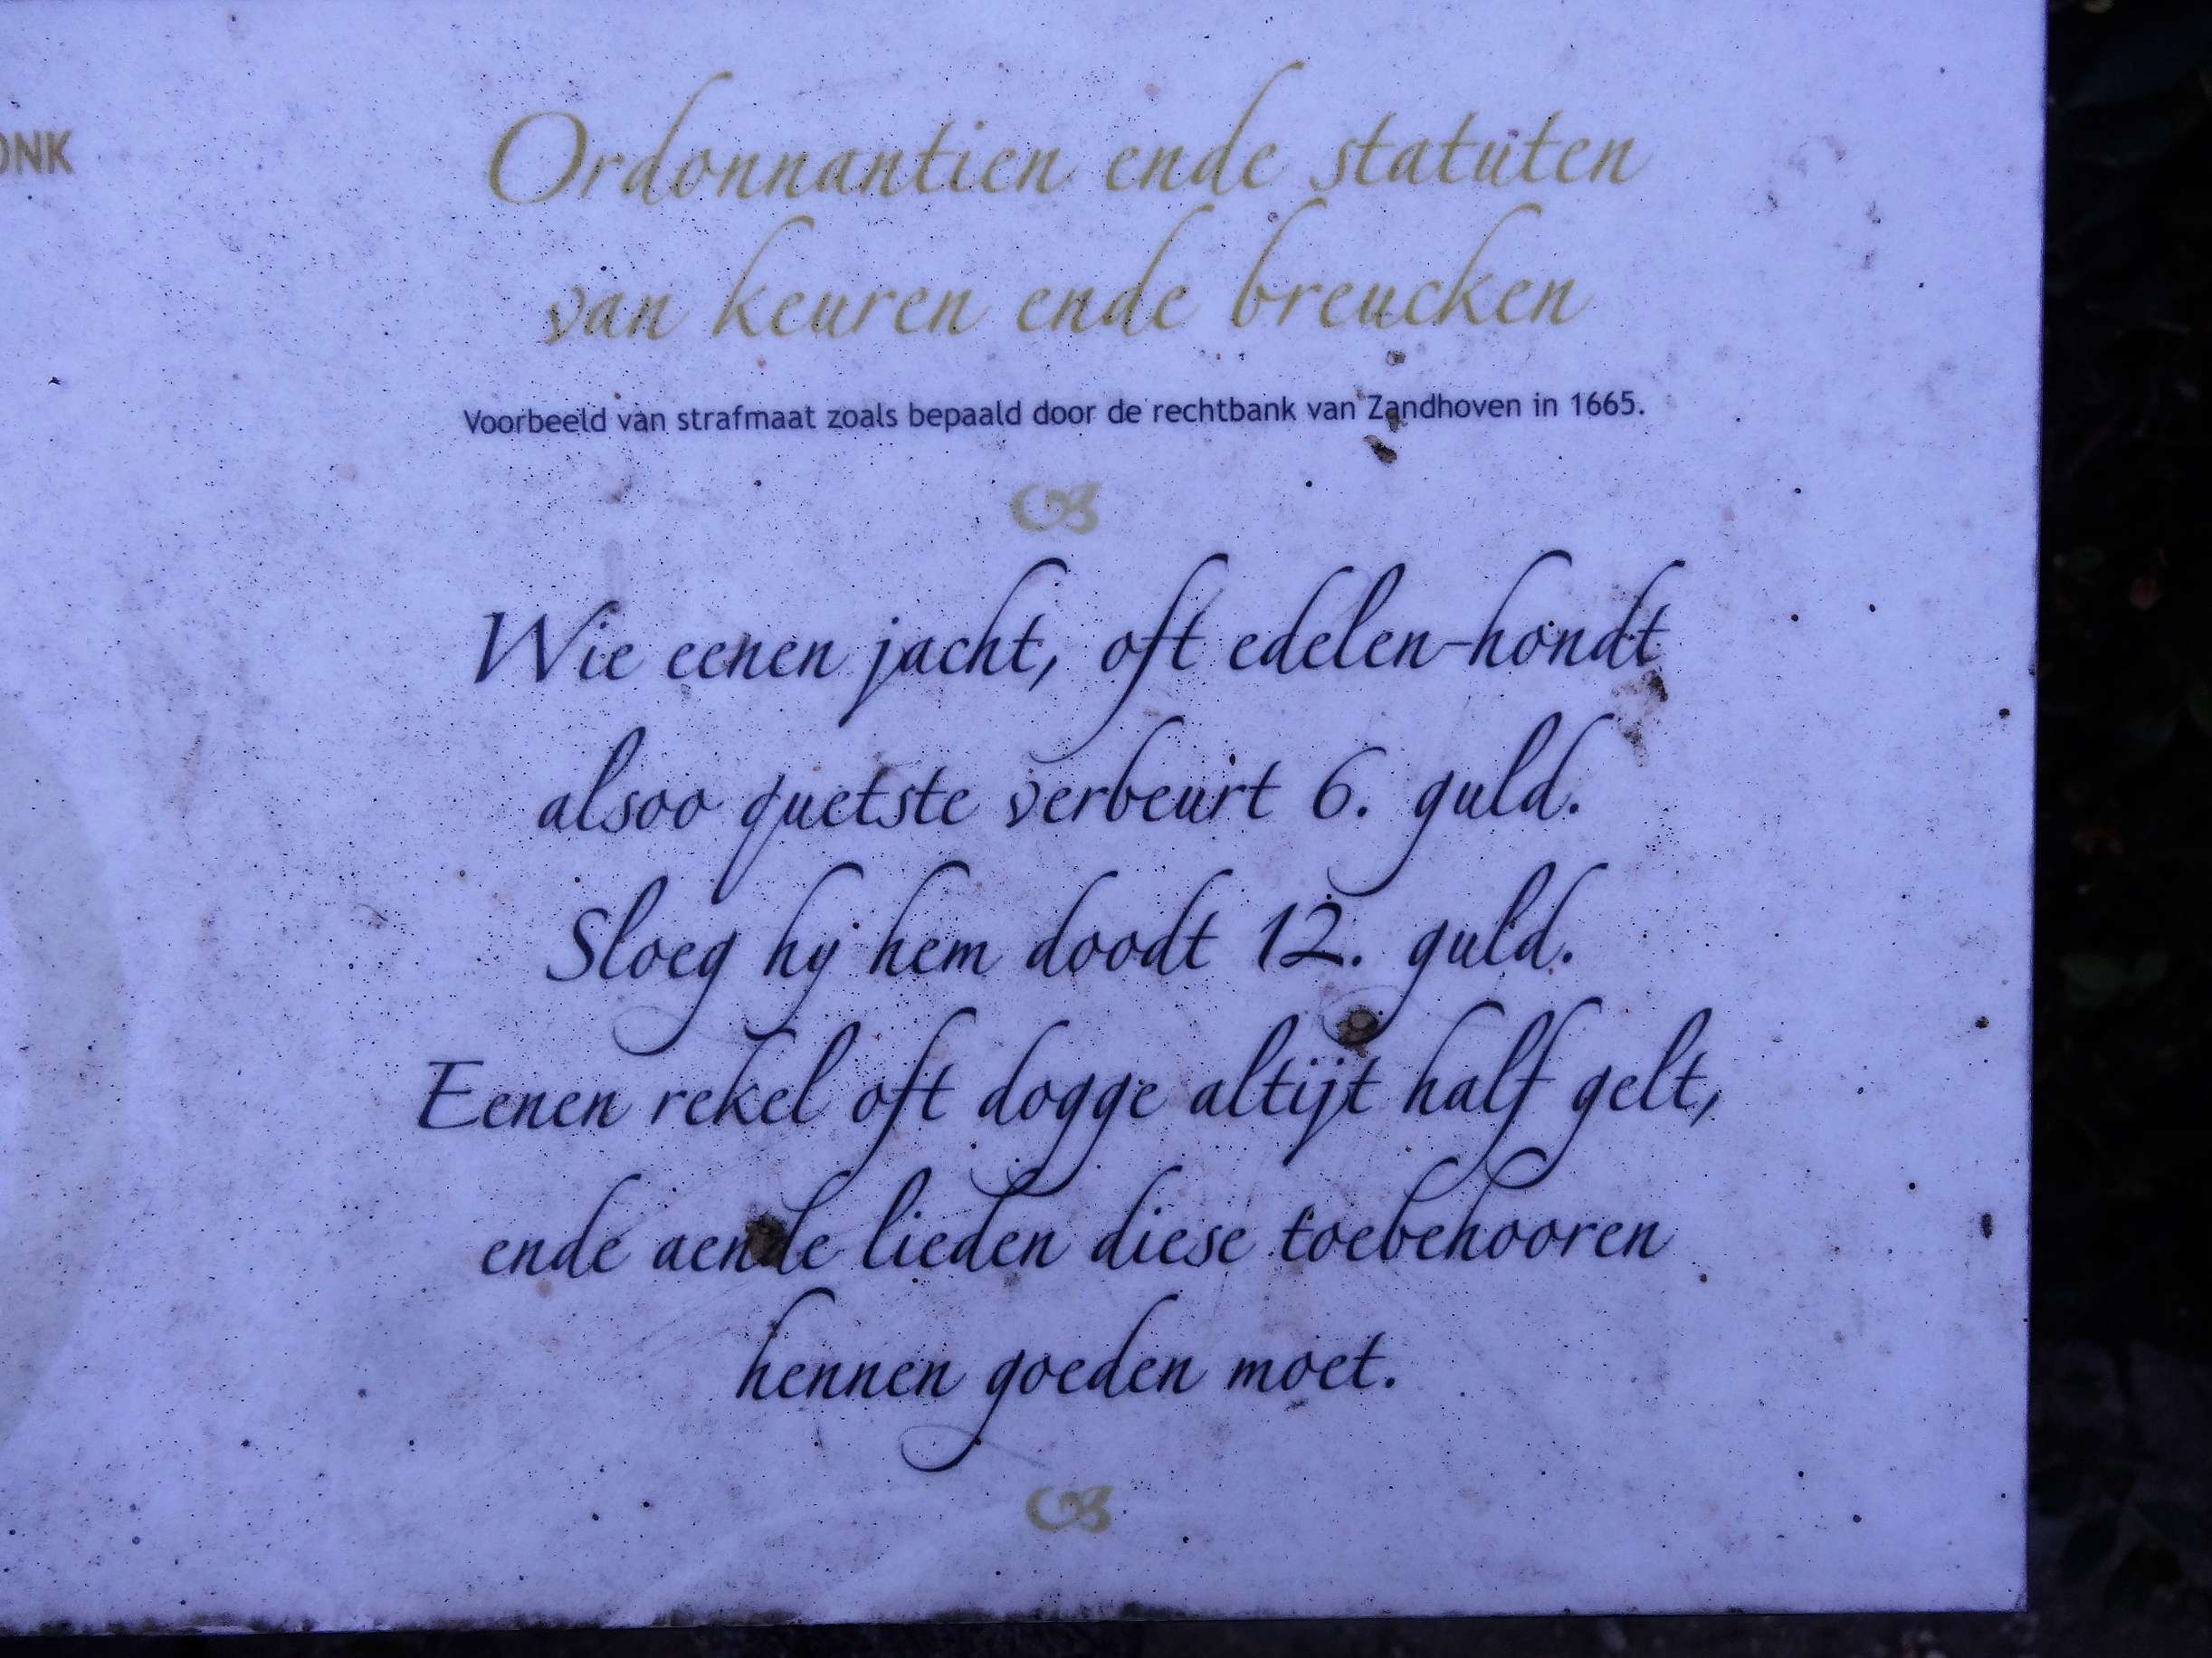 ONK
Ordonnantien ende statuten
van keuren ende breucken
Voorbeeld van strafmaat zoals bepaald door de rechtbank van Zandhoven in 1665.
Wie eenen jacht, oft edelen-hondt
alsoo quetste verbeurt 6. guld.
Sloeg hy hem doodt 12. guld.
Eenen rekel oft dogge altijt half gelt,
ende aende lieden diese toebehooren
hennen goeden moet.